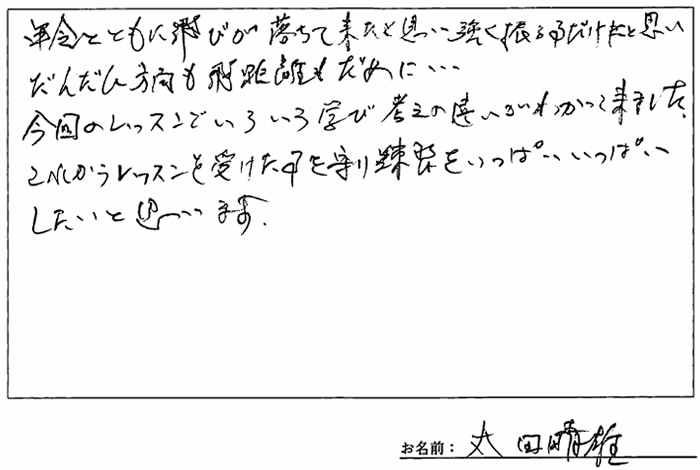 年令とともに飛びが落ちて来たと思い強く振るるだけだと思い
だんだん方向も飛距離もだめに・・・
今回のレッスンでいろいろ学び考えの違いがわかって来ました、
これからレッスンを受けた事を守り練習をいっぱいいっぱい
したいと思います。
お名前: 太田晴雄